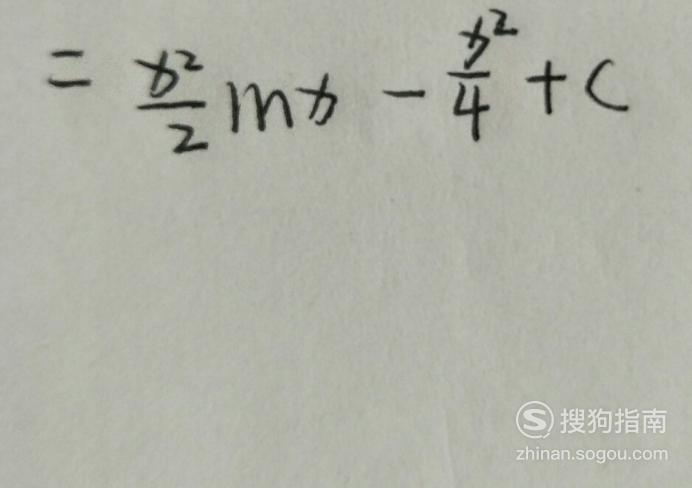 = x²/2 lnx - x²/4 + C
S 搜狗指南
zhinan.sogou.com